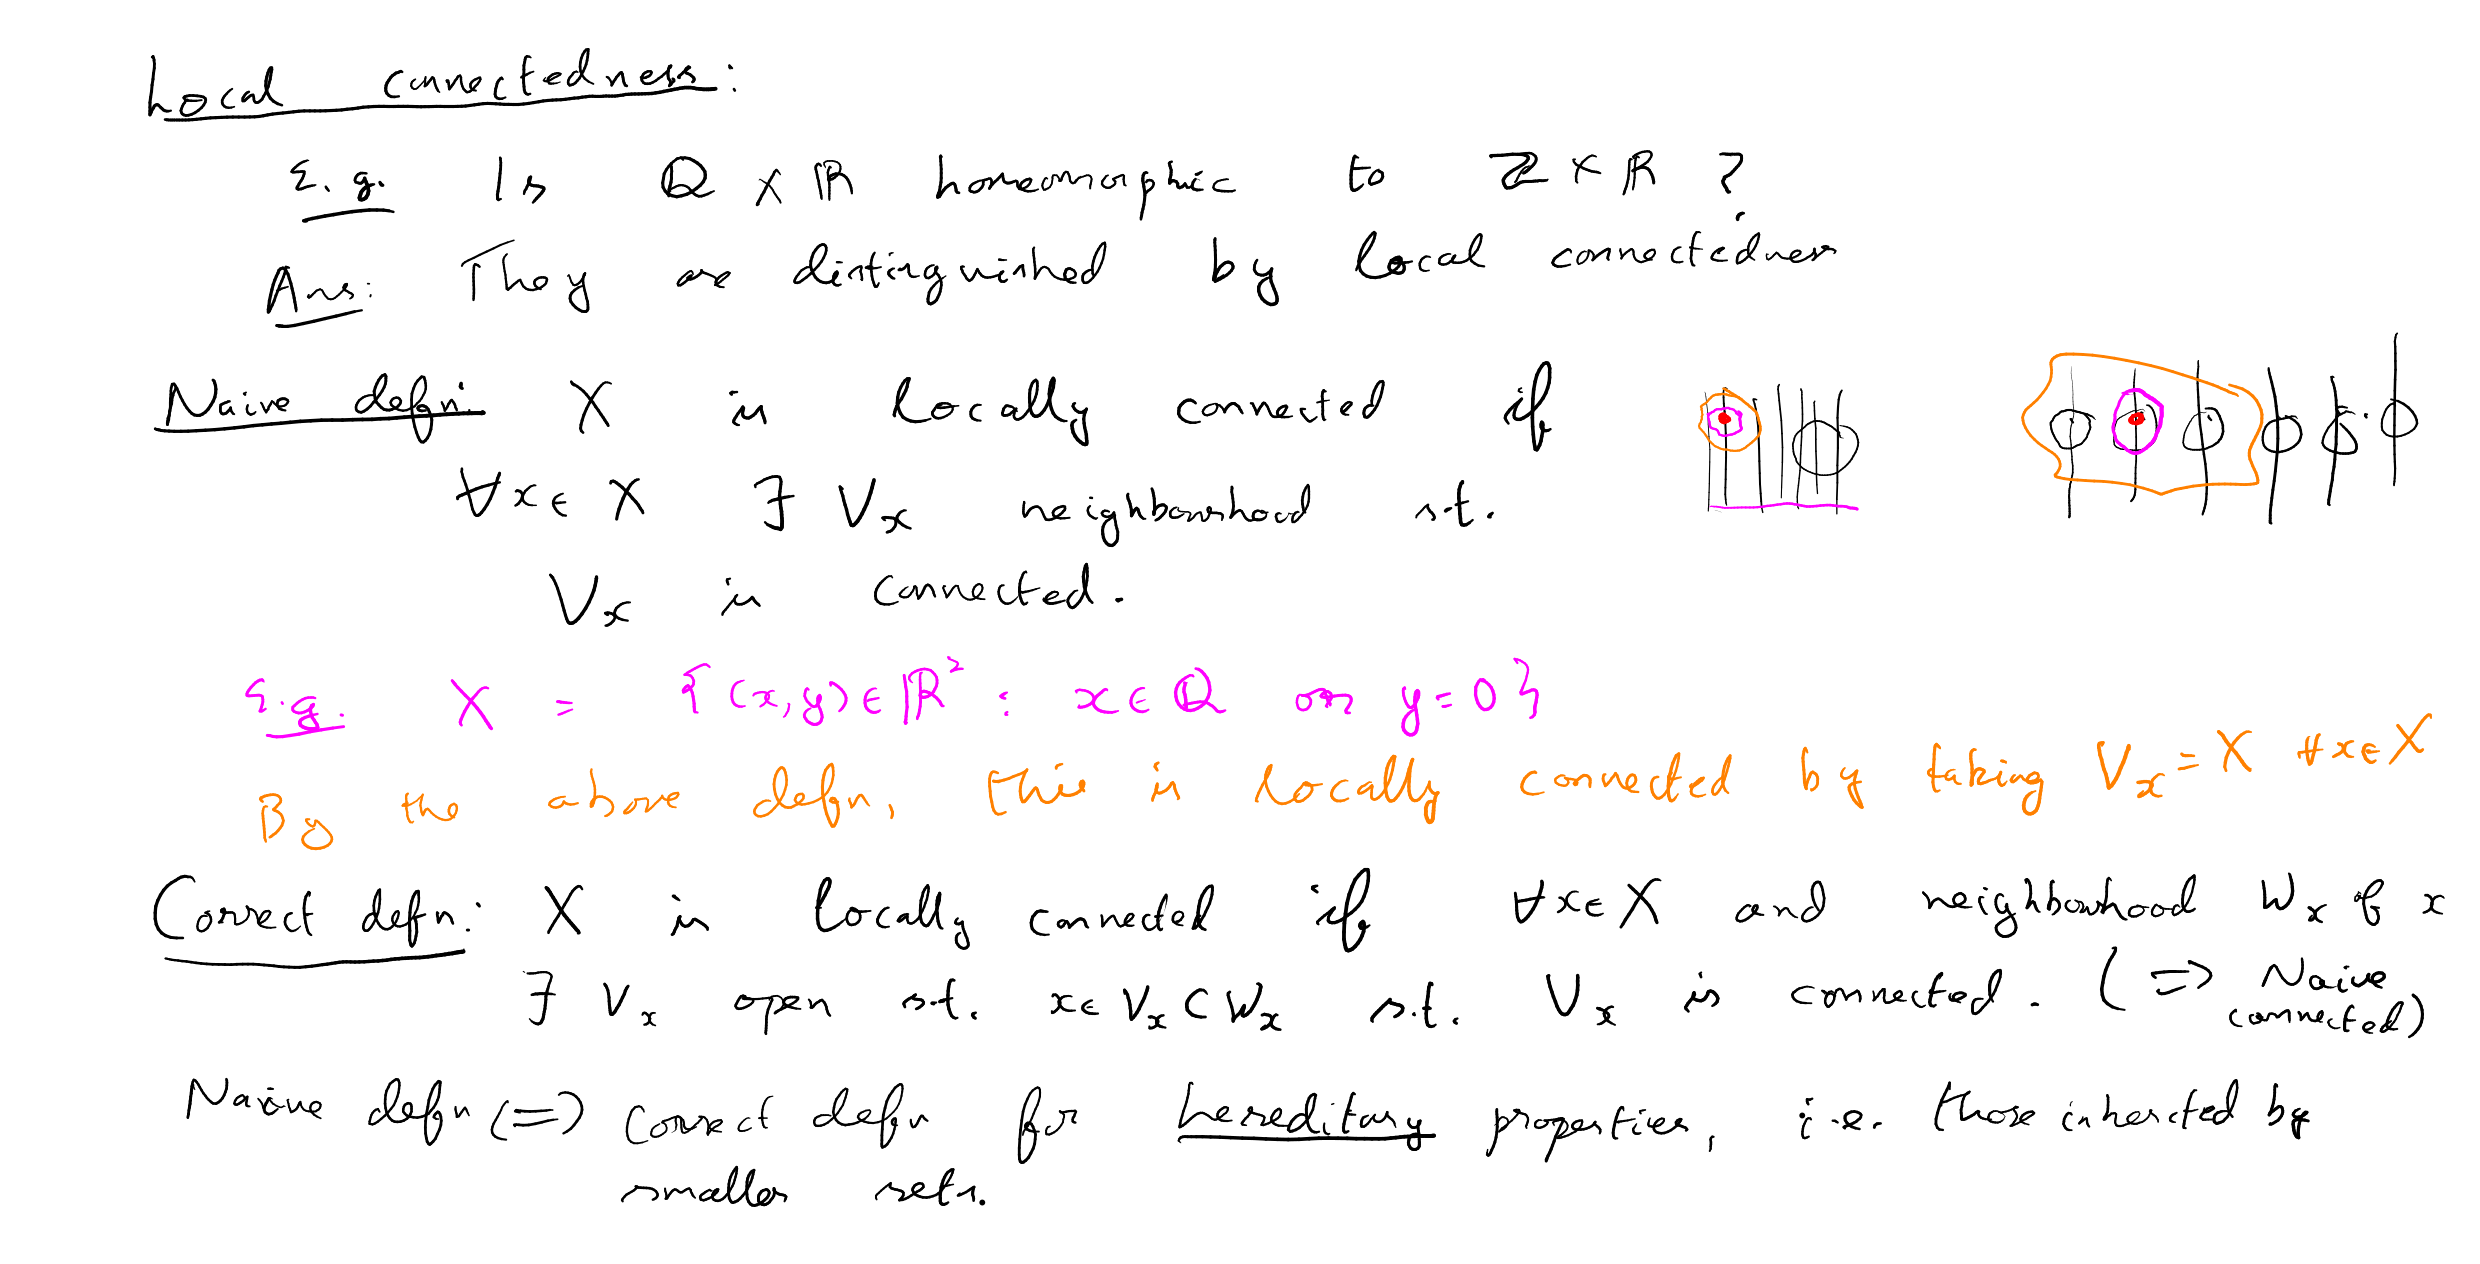 Local connectedness:
E.g. Is ℚ × ℝ homeomorphic to ℤ × ℝ ?
Ans: They are distinguished by local connectedness
Naive defn: X is locally connected if
∀x∈ X ∃ Vₓ neighbourhood s.t.
Vₓ is connected.
E.g. X = {(x,y)∈ℝ² : x∈ℚ or y=0}
By the above defn, this is locally connected by taking Vₓ = X ∀x∈X
Correct defn: X is locally connected if ∀x∈X and neighbourhood Wₓ of x
∃ Vₓ open s.t. x∈ Vₓ ⊂ Wₓ s.t. Vₓ is connected. (⇒ Naive
connected)
Naive defn ⇔ Correct defn for hereditary properties, i.e. those inherited by
smaller sets.